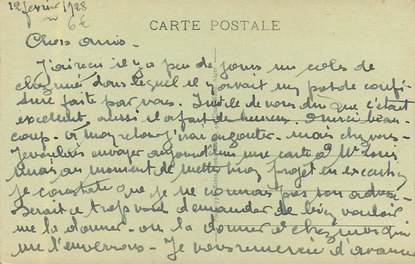 12 février 1928
6 E
CARTE POSTALE
Chers amis -
J'ai reçu il y a peu de jours un colis de
chez moi dans lequel il y avait un pot de confi-
ture faite par vous. Inutile de vous dire que c'était
excellent, aussi il a fait de heureux. Merci beau-
coup - à mon retour j'irai en gouter - mais chez vous -
Je voulais envoyer aujourd'hui une carte à Mr Louis
mais au moment de mettre mon projet en
je constate que je ne connais pas son
Serait ce trop vous demander de bien vouloir
me la donner - ou la donner à chez moi qui
me l'enverrons - Je vous remercie d'avance